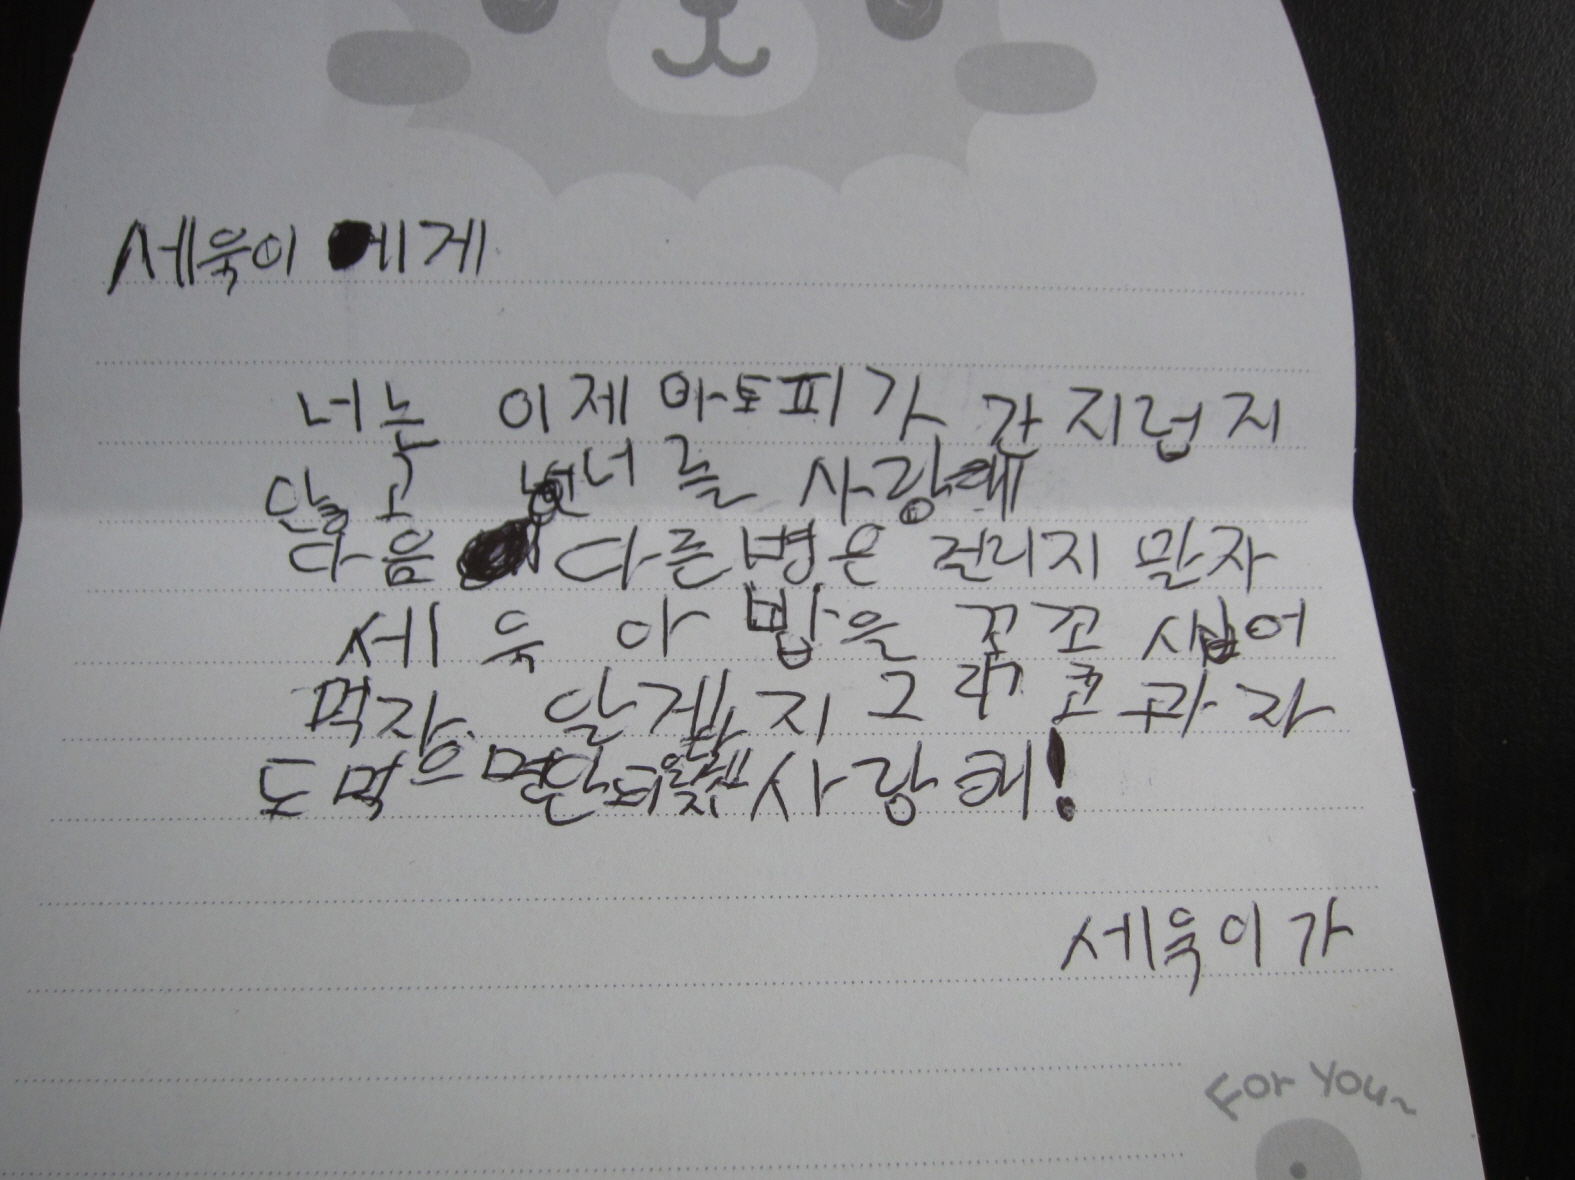 세욱이 에게
너는 이제 아토피가 간지럽지
않고 너를 사랑해
다음 다른병은 걸리지 말자
세욱아 밥을 꼬꼬 씹어
먹자. 알겠지 그리고 과자
도 먹으면 안되 사랑해!
세욱이가
For You~